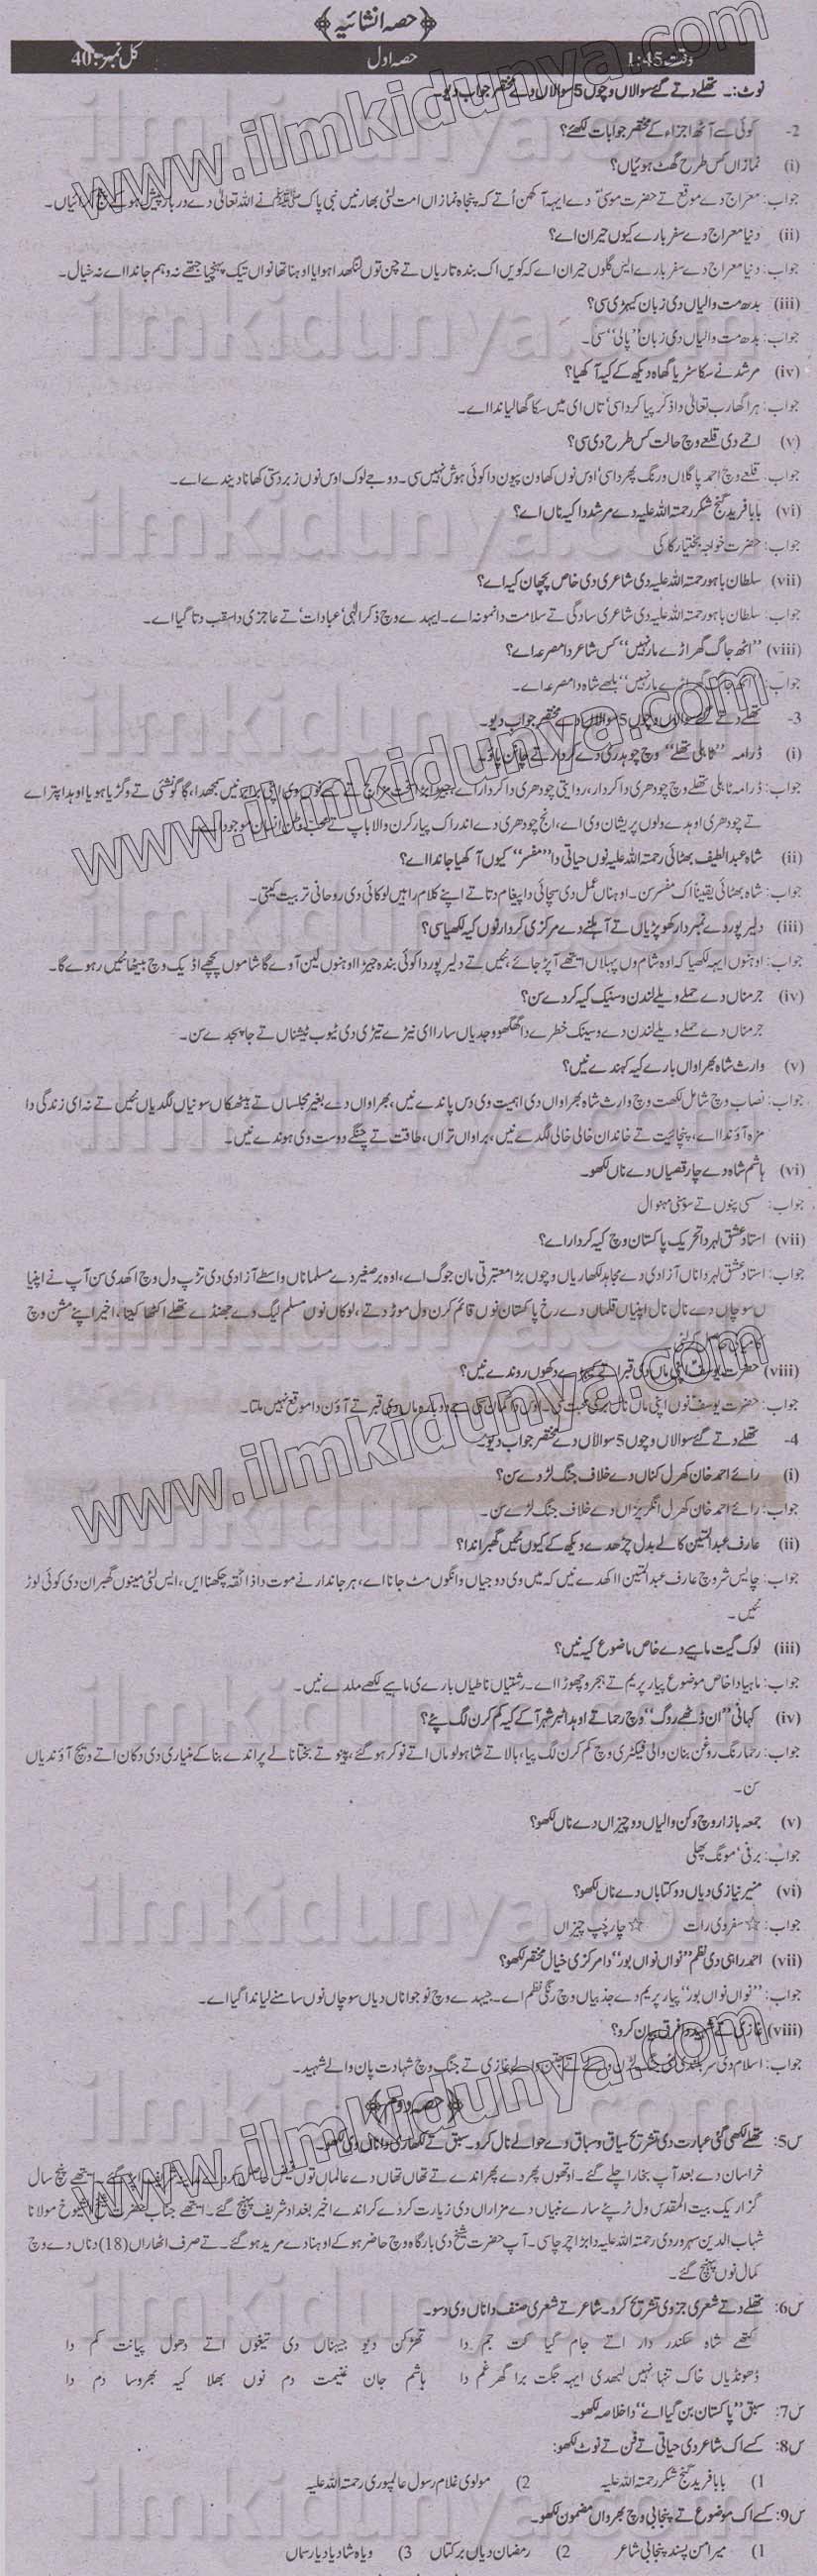 حصہ انشائیہ
وقت 1:45 حصہ اول کل نمبر: 40
نوٹ:۔ تھلے دتے گئے سوالاں وچوں 5 سوالاں دے مختصر جواب دیو۔
2- کوئی سے آٹھ اجزاء کے مختصر جوابات لکھئے؟
(i) نمازاں کس طرح گھٹ ہوئیاں؟
جواب: معراج دے موقع تے حضرت موسیٰ دے ایہہ آکھن اُتے کہ پنجاہ نمازاں امت لئی بھار نیں نبی پاک ﷺ نے اللہ تعالیٰ دے دربار پیش ہو کے
(ii) دنیا معراج دے سفر بارے کیوں حیران اے؟
جواب: دنیا معراج دے سفر بارے ایس گلوں حیران اے کہ کویں اک بندہ تاریاں تے چن توں لنگھدا ہویا اوہنا تھانواں تیک پہنچیا جتھے نہ وہم جاندا اے نہ خیال۔
(iii) بدھ مت والیاں دی زبان کیہڑی سی؟
جواب: بدھ مت والیاں دی زبان "پالی" سی۔
(iv) مرشد نے سکا سڑیا گھاہ دیکھ کے کیہ آکھیا؟
جواب: ہرا گھا رب تعالیٰ دا ذکر پیا کردا سی تاں ای میں سکا گھا لیاندا اے۔
(v) احمے دی قلعے وچ حالت کس طرح دی سی؟
جواب: قلعے وچ احمد پاگلاں ورنگ پھردا سی اوس نوں کھاون پیون دا کوئی ہوش نہیں سی۔ دوجے لوک اوس نوں زبردستی کھانا دیندے اے۔
(vi) بابا فرید گنج شکر رحمتہ اللہ علیہ دے مرشد دا کیہ ناں اے؟
جواب: حضرت خواجہ بختیار کاکی
(vii) سلطان باہو رحمتہ اللہ علیہ دی شاعری دی خاص پچھان کیہ اے؟
جواب: سلطان باہو رحمتہ اللہ علیہ دی شاعری سادگی تے سلامت دا نمونہ اے۔ ایہدے وچ ذکر الٰہی، عبادات تے عاجزی دا سبق دتا گیا اے۔
(viii) "اٹھ جاگ گھراڑے مار نہیں" کس شاعر دا مصرعہ اے؟
جواب: گھراڑے مار نہیں" بلھے شاہ دا مصرعہ اے۔
3- تھلے دتے گئے سوالاں وچوں 5 سوالاں دے مختصر جواب دیو۔
(i) ڈرامہ "ٹاہلی تھلے" وچ چوہدری دے کردار تے چانن پاؤ۔
جواب: ڈرامہ ٹاہلی تھلے وچ چودھری دا کردار، روایتی چودھری دا کردار اے، نیں سمجھدا، گاگو نشئی تے وگڑیا ہویا اوہدا پتر اے
تے چودھری اوہدے ولوں پریشان وی اے، انج چودھری دے اندر اک پیار کرن والا باپ تے محب وطن انسان موجود اے۔
(ii) شاہ عبدالطیف بھٹائی رحمتہ اللہ علیہ نوں حیاتی دا "مفسر" کیوں آکھیا جاندا اے؟
جواب: شاہ بھٹائی یقیناً اک مفسر سن۔ اوہناں عمل دی سچائی دا پیغام دتا تے اپنے کلام راہیں لوکائی دی روحانی تربیت کیتی۔
(iii) دلیر پور دے نمبردار کھوپڑیاں تے آہلنے دے مرکزی کردار نوں کیہ لکھیا سی؟
جواب: اوہنوں ایہہ لکھیا کہ اوہ شام وں پہلاں ایتھے آپڑ جائے، نئیں تے دلیر پور دا کوئی بندہ جیہڑا اوہنوں لین آوے گا شاموں پچھے اڈیک وچ بیٹھا نئیں رہوے گا۔
(iv) جرمناں دے حملے ویلے لندن وسنیک کیہ کردے سن؟
جرمناں دے حملے ویلے لندن دے وسنیک خطرے دا گھگھو وجدیاں سارا ای نیڑے تیڑی دی ٹیوب ٹیشناں تے جا پجدے سن۔
(v) وارث شاہ بھراواں بارے کیہ کہندے نیں؟
جواب: نصاب وچ شامل لکھت وچ وارث شاہ بھراواں دی اہمیت وی دس پاندے نیں، بھراواں دے بغیر مجلساں تے بیٹھکاں سونیاں لگدیاں نئیں تے نہ ای زندگی دا
مزہ آؤندا اے، پنچائیت تے خاندان خالی خالی لگدے نیں، براواں تراں، طاقت تے چنگے دوست وی ہوندے نیں۔
(vi) ہاشم شاہ دے چار قصیاں دے ناں لکھو۔
جواب: سسی پنوں تے سوہنی مہنوال
(vii) استاد عشق لہر دا تحریک پاکستان وچ کیہ کردار اے؟
جواب: استاد عشق لہر دا ناں آزادی دے مجاہد لکھاریاں وچوں بڑا معتبر تی مان جوگ اے، اوہ برصغیر دے مسلماناں واسطے آزادی دی تڑپ ول وچ اکھدی سن آپ نے اپنیا
ں سوچاں دے نال نال اپنیاں قلماں دے رخ پاکستان نوں قائم کرن ول موڑ دتے، لوکاں نوں مسلم لیگ دے جھنڈے تھلے اکٹھا کیتا، اخیر اپنے مشن وچ
(viii) حضرت یوسف اپنی ماں دی قبر اتے کیہڑے دکھوں روندے نیں؟
جواب: حضرت یوسف نوں اپنی ماں نال بڑی محبت سی۔ اوس دا گمان سی دوبارہ ماں دی قبر تے آؤن دا موقع نہیں ملنا۔
4- تھلے دتے گئے سوالاں وچوں 5 سوالاں دے مختصر جواب دیو۔
(i) رائے احمد خان کھرل کناں دے خلاف جنگ لڑدے سن؟
جواب: رائے احمد خان کھرل انگریزاں دے خلاف جنگ لڑے سن۔
(ii) عارف عبدالمتین کالے بدل چڑھدے دیکھ کے کیوں نئیں گھبراندا؟
جواب: چالیس شر وچ عارف عبدالمتین آکھدے نیں کہ میں وی دوجیاں وانگوں مٹ جانا اے، ہر جاندار نے موت دا ذائقہ چکھنا ایں، ایس لئی مینوں گھبران دی کوئی لوڑ
نئیں۔
(iii) لوک گیت ماہیے دے خاص ماضوع کیہ نیں؟
جواب: ماہیا دا خاص موضوع پیار پریم تے ہجر وچھوڑا اے۔ رشتیاں ناطیاں بارے ی ماہیے لکھے ملدے نیں۔
(iv) کہانی "ان ڈٹھے روگ" وچ رحما تے اوہدا ٹبر شہر آ کے کیہ کم کرن لگ پئے؟
جواب: رحما رنگ روغن بنان والی فیکٹری وچ کم کرن لگ پیا، بالا تے شاہو لوماں اتے نوکر ہو گئے، پینو تے بختا نالے پراندے بنا کے منیاری دی دکان اتے ویچ آؤندیاں
سن۔
(v) جمعہ بازار وچ وکن والیاں دو چیزاں دے ناں لکھو؟
جواب: برفی، مونگ پھلی
(vi) منیر نیازی دیاں دو کتاباں دے ناں لکھو؟
جواب: ☆ سفر دی رات ☆ چار چُپ چیزاں
(vii) احمد راہی دی نظم "نواں نواں بور" دا مرکزی خیال مختصر لکھو؟
جواب: "نواں نواں بور" پیار پریم دے جذبیاں وچ رنگی نظم اے۔ جیہدے وچ نوجواناں دیاں سوچاں نوں سامنے لیاندا گیا اے۔
(viii) غازی تے شہید دا فرق بیان کرو؟
جواب: اسلام دی سربلندی لئی جنگ والے غازی تے جنگ وچ شہادت پان والے شہید۔
حصہ دوم
س5: تھلے لکھی گئی عبارت دی تشریح سیاق و سباق دے حوالے نال کرو۔ سبق تے لکھاری دا ناں وی لکھو۔
خراسان دے بعد آپ بخارا چلے گئے۔ اوتھوں پھردے پھراندے تے تھاں تھاں دے عالماں توں فیض پنج سال
گزار یک بیت المقدس ول ٹرپئے سارے نبیاں دے مزاراں دی زیارت کردے کراندے اخیر بغداد شریف پہنچ گئے۔ ایتھے جناب حضرت مولانا
شہاب الدین سہروردی رحمتہ اللہ علیہ دا بڑا چرچا سی۔ آپ حضرت شیخ دی بارگاہ وچ حاضر ہو کے اوہنا دے مرید ہو گئے۔ تے صرف اٹھاراں (18) دناں دے وچ
کمال نوں پہنچ گئے۔
س6: تھلے دتے شعری جزو دی تشریح کرو۔ شاعر تے شعری صنف دا ناں وی دسو۔
کتھے شاہ سکندر دارا تے جام گیا کت جم دا تھڑکن دیو جیہناں دی تیغوں اتے دھول پیانت کم دا
ڈھونڈیاں خاک تنہا نہیں لبھدی ایہہ جگت برا گھر غم دا ہاشم جان غنیمت دم نوں بھلا کیہ بھروسا دم دا
س7: سبق "پاکستان بن گیا اے" دا خلاصہ لکھو۔
س8: کسے اک شاعر دی حیاتی تے فن تے نوٹ لکھو:
1) بابا فرید گنج شکر رحمتہ اللہ علیہ 2) مولوی غلام رسول عالمپوری رحمتہ اللہ علیہ
س9: کسے اک موضوع تے پنجابی وچ بھرواں مضمون لکھو۔
1) میرا من پسند پنجابی شاعر 2) رمضان دیاں برکتاں 3) ویاہ شادیاں دیاں رسماں
www.ilmkidunya.com